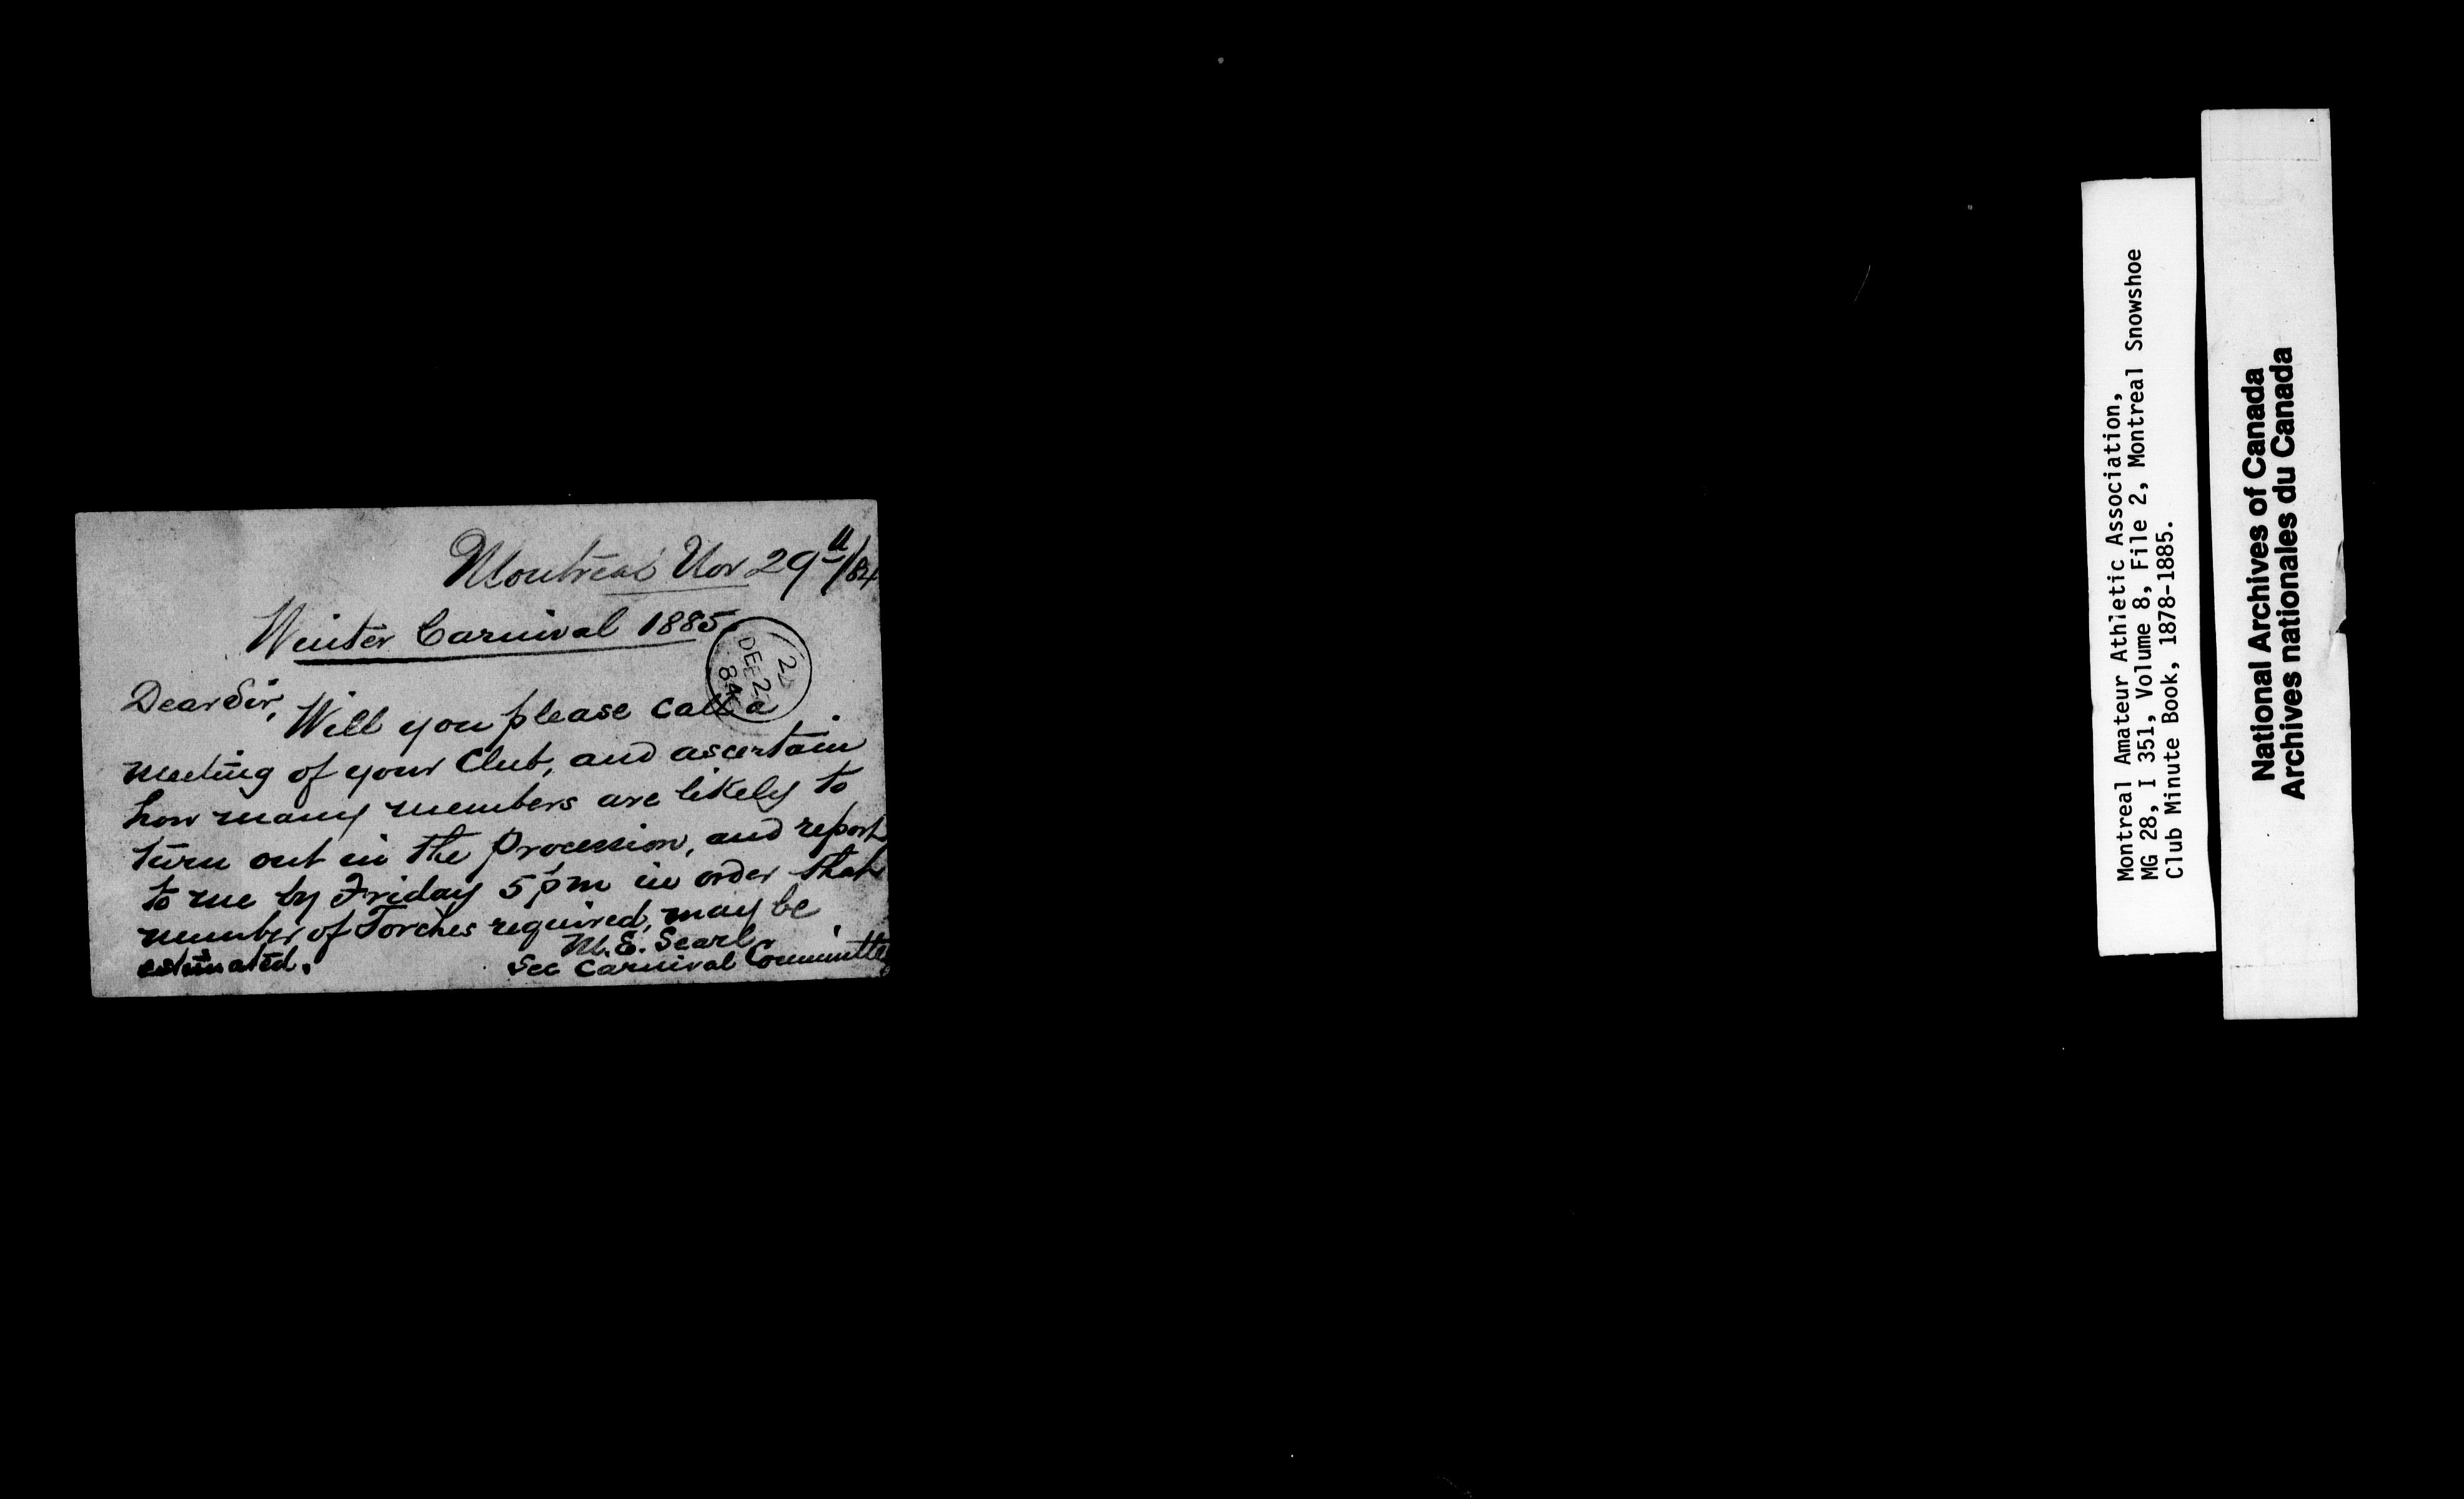 Montreal Nov 29th/84
Winter Carnival 1885.
2
DE 2
84
Dear Sir,
Will you please call a
meeting of your Club, and ascertain
how many members are likely to
turn out in the Procession, and report
to me by Friday 5 pm in order that
number of Torches required, may be
estimated.
M. E. Searl
Sec Carnival Committee
Montreal Amateur Athletic Association,
MG 28, I 351, Volume 8, File 2, Montreal Snowshoe
Club Minute Book, 1878-1885.
National Archives of Canada
Archives nationales du Canada